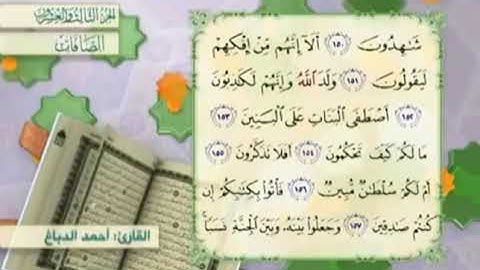 الجزء الثالث والعشرون
الصافات
شَٰهِدُونَ ١٥٠ أَلَآ إِنَّهُم مِّنْ إِفْكِهِمْ
لَيَقُولُونَ ١٥١ وَلَدَ ٱللَّهُ وَإِنَّهُمْ لَكَٰذِبُونَ
١٥٢ أَصْطَفَى ٱلْبَنَاتِ عَلَى ٱلْبَنِينَ ١٥٣
مَا لَكُمْ كَيْفَ تَحْكُمُونَ ١٥٤ أَفَلَا تَذَكَّرُونَ ١٥٥
أَمْ لَكُمْ سُلْطَٰنٌ مُّبِينٌ ١٥٦ فَأْتُوا۟ بِكِتَٰبِكُمْ إِن
كُنتُمْ صَٰدِقِينَ ١٥٧ وَجَعَلُوا۟ بَيْنَهُۥ وَبَيْنَ ٱلْجِنَّةِ نَسَبًا
القارئ: أحمد الدباغ